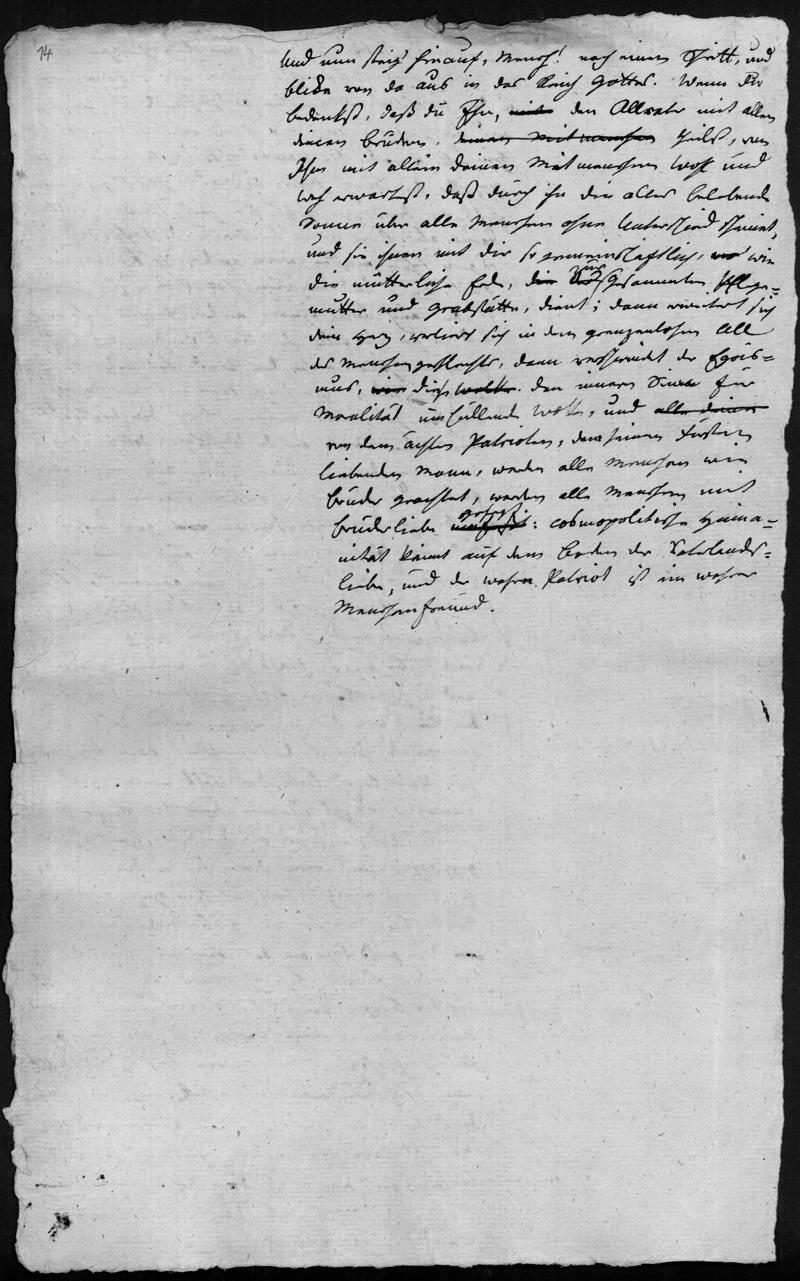 14
Und nun steig hinauf, Mensch! noch einen Schritt, und
blike von da aus in das Reich Gottes. Wenn du
bedenkst, daß du Ihn, mit den Allvater mit allen
deinen Brüdern, deinen Mitmenschen theilst, von
Ihm mit allen deinen Mitmenschen Wohl und
Weh erwartest, daß durch ihn die alles belebende
Sonne über alle Menschen ohne Unterschied scheint,
und sie ihnen mit dir so gemeinschaftlich, wie
die mütterliche Erde, die gesammten Pflege-
mutter und Grabstätte, dient; dann erweitert sich
dein Herz, verliert sich in dem grenzenlosen All
des Menschengeschlechts, dann verschwindet der Egois-
mus, wie diese Wolke den innern Sinn für
Moralität umhüllende Wolke, und alle deine
von dem ächten Patrioten, dem seinen Fürsten
liebenden Mann, werden alle Menschen wie
Brüder geachtet, werden alle Menschen mit
Bruderliebe umfaßt: cosmopolitische Huma-
nität keimt auf dem Boden der Vaterlands-
liebe, und der wahre Patriot ist ein wahrer
Menschenfreund.